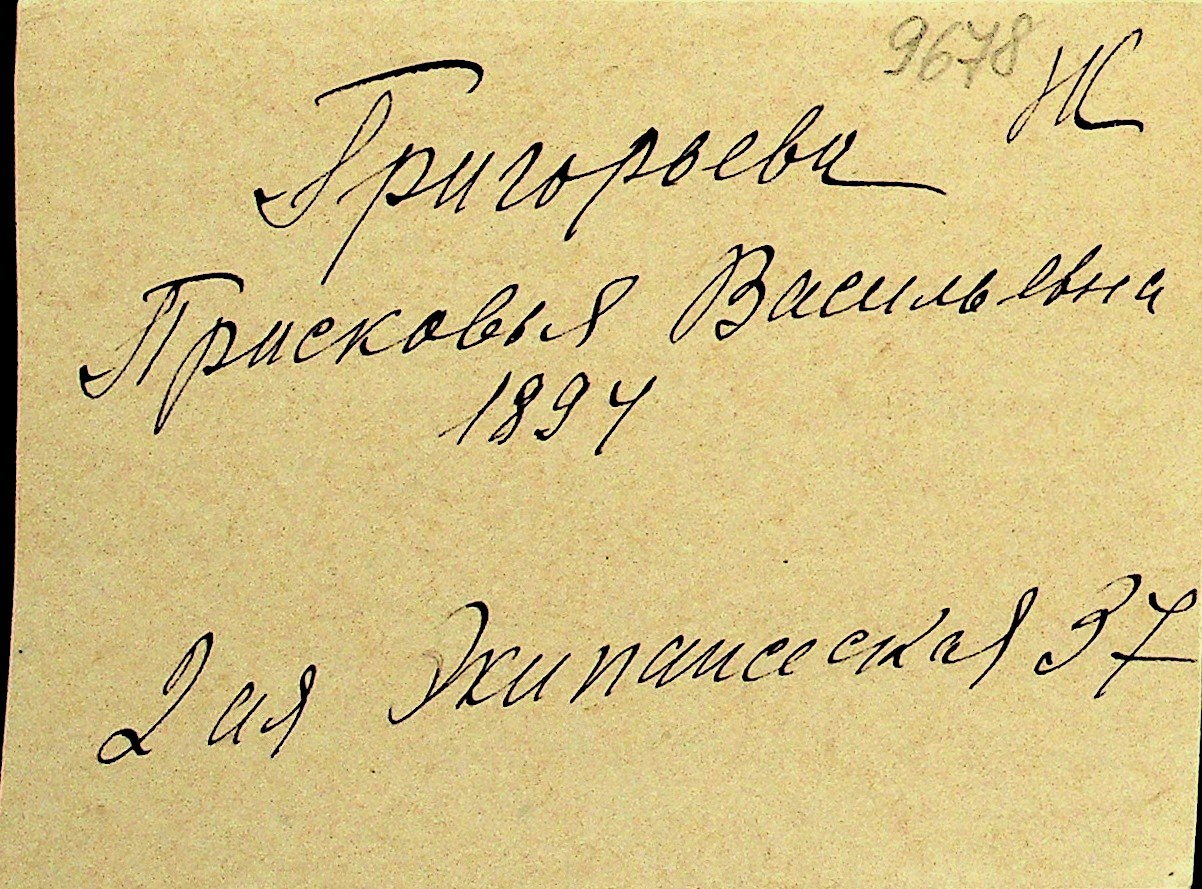 9678 Ж
Григорьева
Прасковья Васильевна
1894
2ая Экипажеская 37